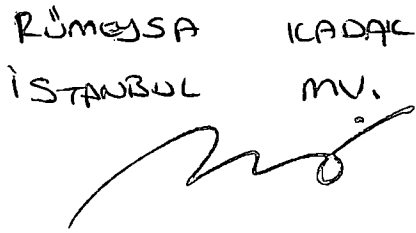 RÜMEYSA KADAK
İSTANBUL MV.